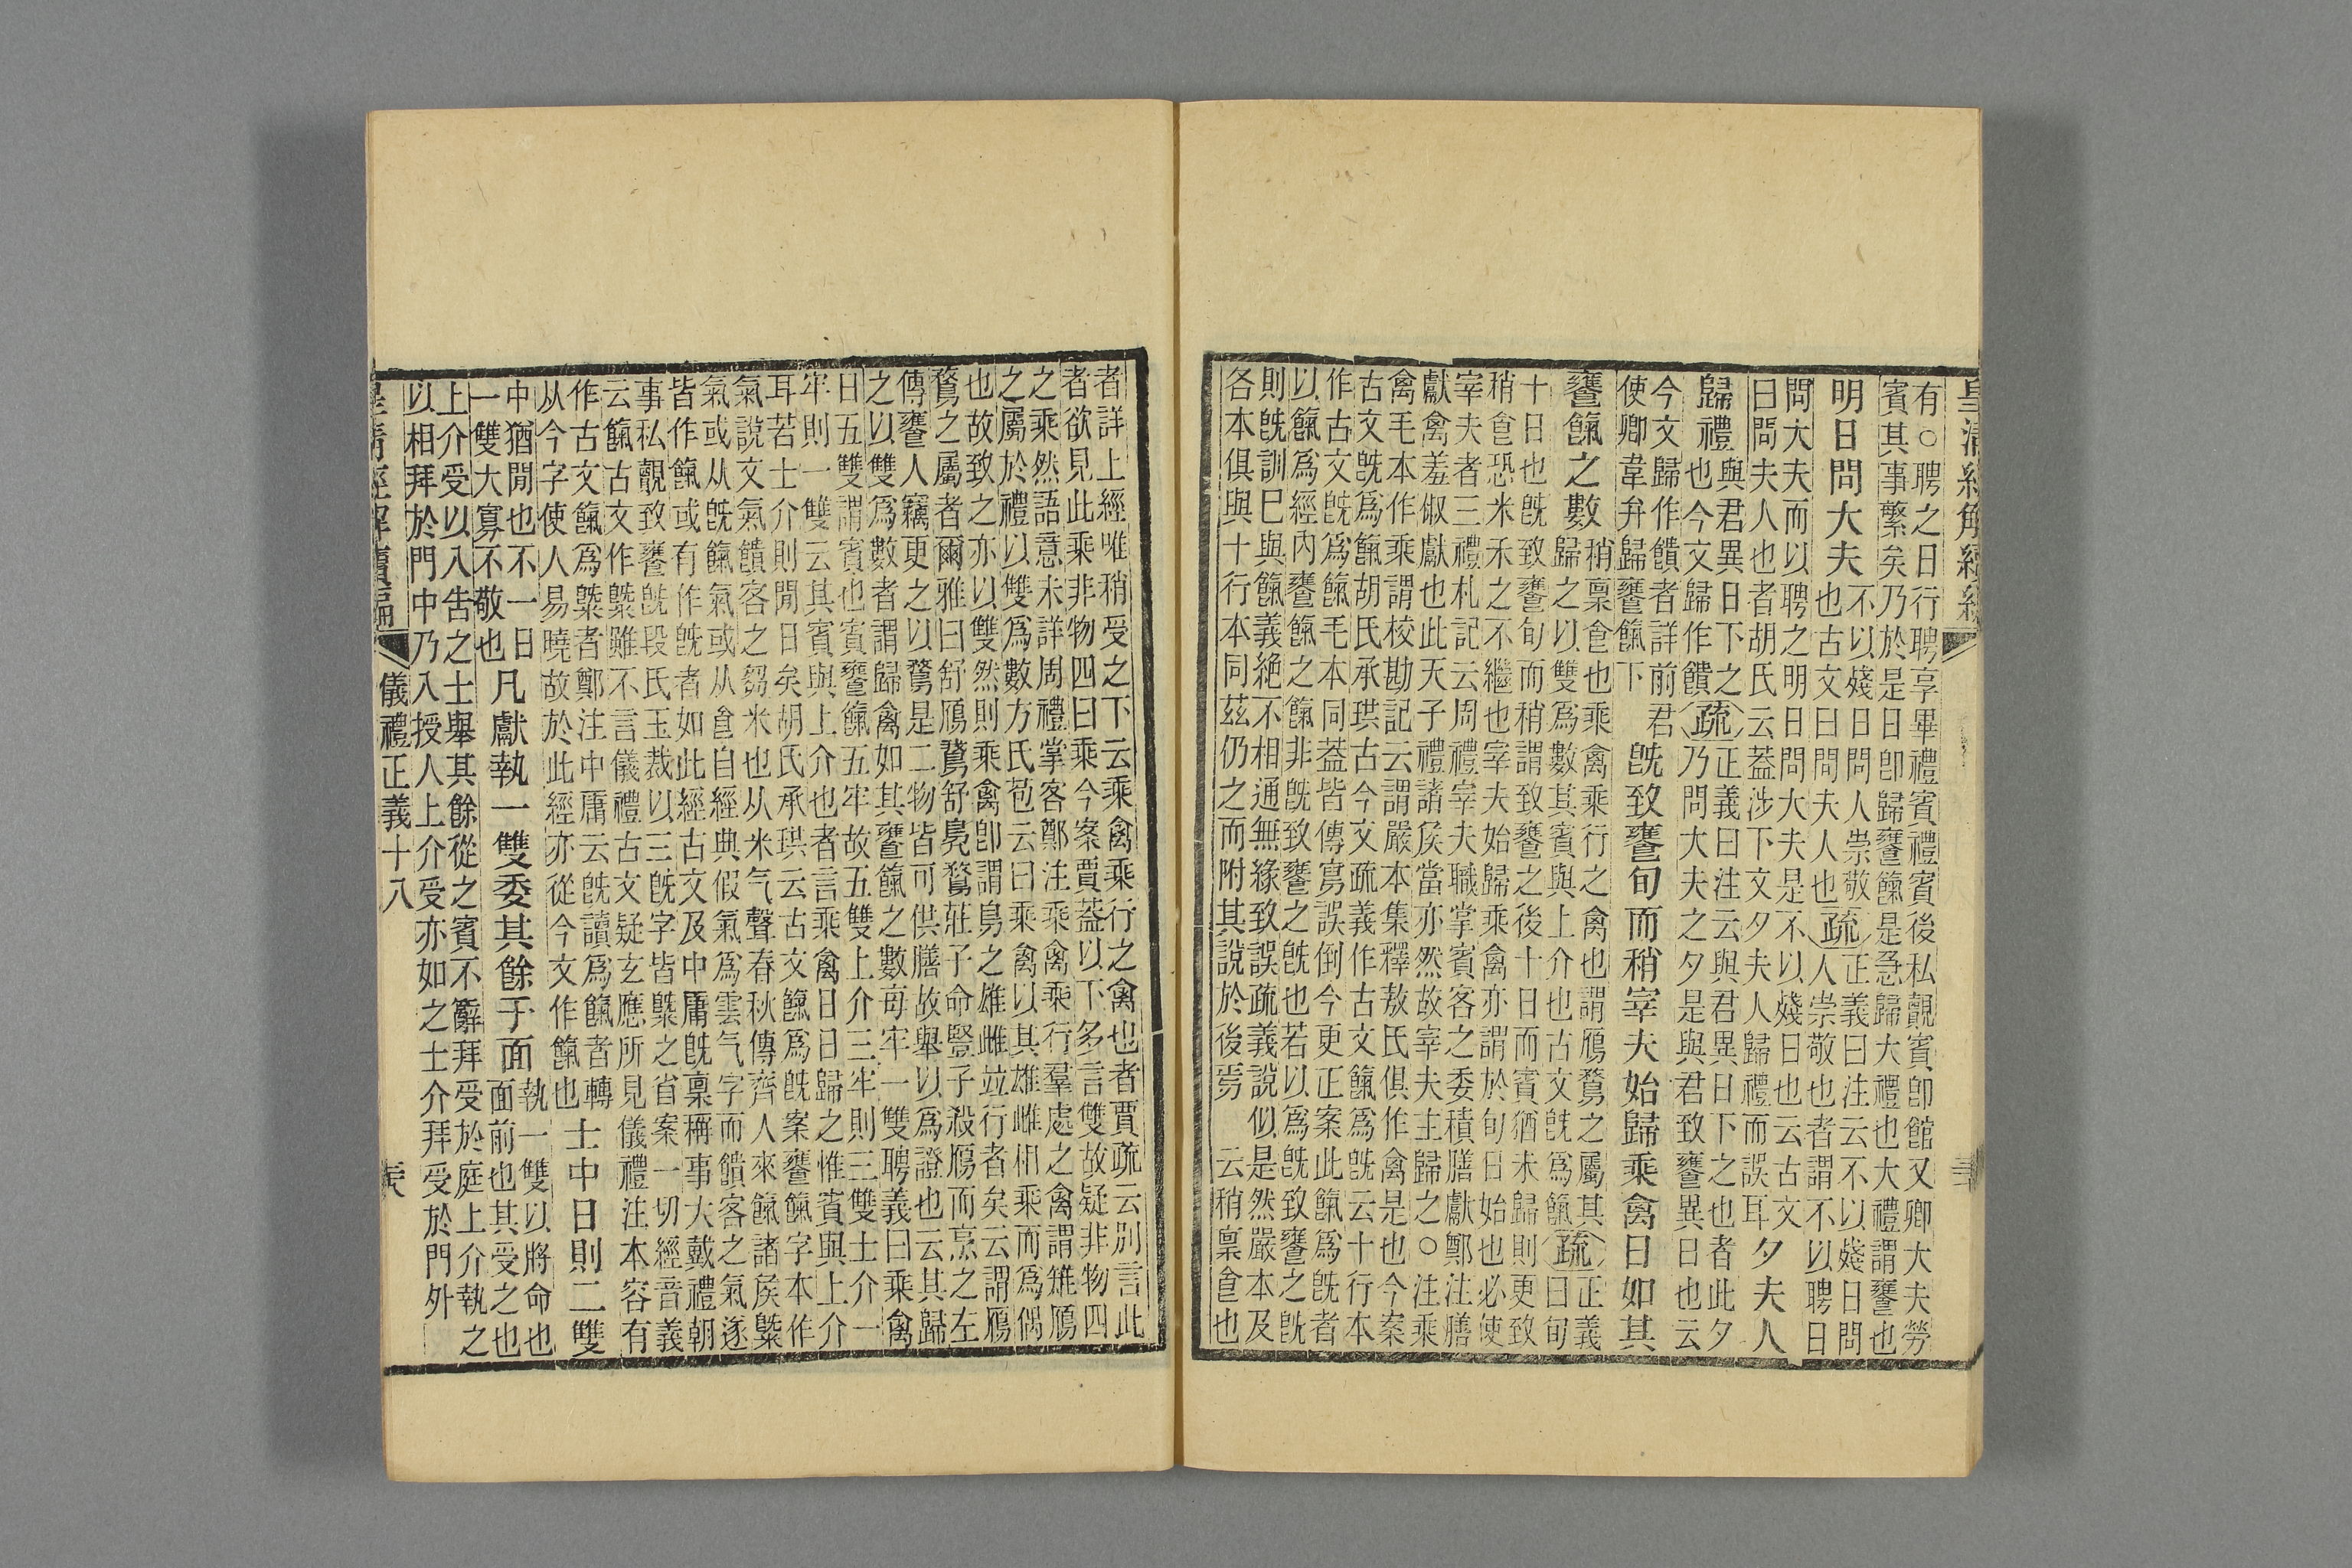 皇清經解續編
有○聘之日行聘享畢禮賓禮賓後私覿賓卽館又卿大夫勞
賓其事繁矣乃於是日卽歸饔餼是急歸大禮也大禮謂饔也
明日問大夫不以殘日問人崇敬也古文曰問夫人也疏正義曰注云不以殘日問人崇敬也者謂不以聘日
問大夫而以聘之明日問大夫是不以殘日也云古文
曰問夫人也者胡氏云蓋涉下文夕夫人歸禮而誤耳夕夫人
歸禮與君異日下之也今文歸作饋疏正義曰注云與君異日下之也者此夕乃問大夫之夕是與君致饔異日也云
今文歸作饋者詳前君使卿韋弁歸饔餼下旣致饔旬而稍宰夫始歸乘禽日如其
饔餼之數稍稟食也乘禽乘行之禽也謂鴈鶩之屬其歸之以雙爲數其賓與上介也古文旣爲餼疏正義曰旬
十日也旣致饔旬而稍謂致饔之後十日而賓猶未歸則更致
稍食恐米禾之不繼也宰夫始歸乘禽亦謂於旬日始也必使
宰夫者三禮札記云周禮宰夫職掌賓客之委積膳獻鄭注膳
獻禽羞俶獻也此天子禮諸侯當亦然故宰夫主歸之○注乘
禽毛本作乘謂校勘記云謂嚴本集釋敖氏俱作禽是也今案
古文旣爲餼胡氏承珙古今文疏義作古文餼爲旣云十行本
作古文旣爲餼毛本同蓋皆傳寫誤倒今更正案此餼爲旣者
以餼爲經內饔餼之餼非旣致饔之旣也若以爲旣致饔之旣
則旣訓巳與餼義絶不相通無緣致誤疏義說似是然嚴本及
各本俱與十行本同茲仍之而附其說於後焉 云稍稟食也
者詳上經唯稍受之下云乘禽乘行之禽也者賈疏云別言此
者欲見此乘非物四曰乘今案賈蓋以下多言雙故疑非物四
之乘然語意未詳周禮掌客鄭注乘禽乘行羣處之禽謂雉鴈
之屬於禮以雙爲數方氏苞云曰乘禽以其雄雌相乘而爲偶
也故致之亦以雙然則乘禽卽謂鳥之雄雌竝行者矣云謂鴈
鶩之屬者爾雅曰舒鴈鵞舒鳧鶩莊子命豎子殺鴈而烹之左
傳饔人竊更之以鶩是二物皆可供膳故舉以爲證也云其歸
之以雙爲數者謂歸禽如其饔餼之數每牢一雙聘義曰乘禽
日五雙謂賓也賓饔餼五牢故五雙上介三牢則三雙士介一
牢則一雙云其賓與上介也者言乘禽日日歸之惟賓與上介
耳若士介則閒日矣胡氏承珙云古文餼爲旣案饔餼字本作
氣說文氣饋客之芻米也从米气聲春秋傳齊人來餼諸侯槩
氣或从旣餼氣或从食自經典假氣爲雲气字而饋客之氣逐
皆作餼或有作旣者如此經古文及中庸旣稟稱事大戴禮朝
事私覿致饔旣段氏玉裁以三旣字皆槩之省案一切經音義
云餼古文作槩雖不言儀禮古文疑玄應所見儀禮注本容有
作古文餼爲槩者鄭注中庸云旣讀爲餼者轉
从今字使人易曉故於此經亦從今文作餼也士中日則二雙
中猶閒也不一日一雙大寡不敬也凡獻執一雙委其餘于面執一雙以將命也面前也其受之也
上介受以入告之士舉其餘從之賓不辭拜受於庭上介執之
以相拜於門中乃入授人上介受亦如之士介拜受於門外
皇清經解續編 儀禮正義十八